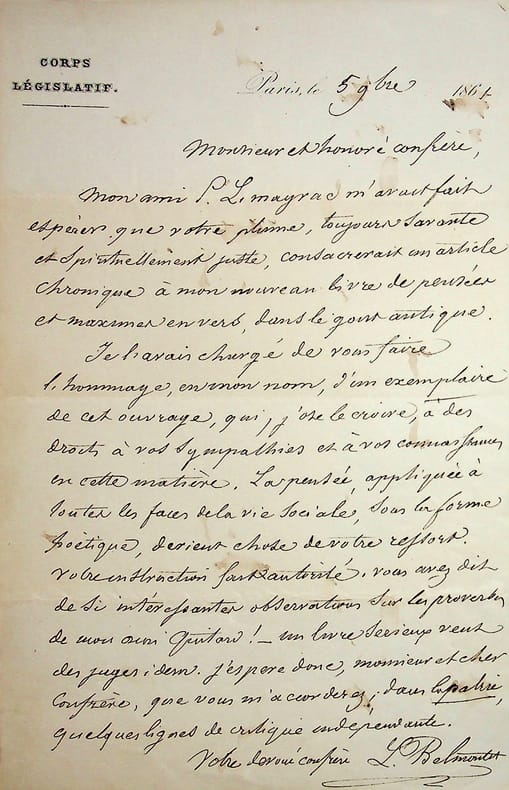 CORPS
LÉGISLATIF.
Paris, le 5 9bre 1864
Monsieur et honoré confrère,
Mon ami P. Limayrac m'avait fait
espérer que votre plume, toujours savante
et spirituellement juste, consacrerait un article
chronique à mon nouveau livre de pensées
et maximes en vers, dans le goût antique.
Je l'avais chargé de vous faire
l'hommage, en mon nom, d'un exemplaire
de cet ouvrage, qui, j'ose le croire, à des
droits à vos sympathies et à vos connaissances
en cette matière. La pensée, appliquée à
toutes les faces de la vie sociale, sous la forme
poétique, devient chose de votre ressort.
votre instruction fait autorité. vous avez dit
de si intéressantes observations sur les proverbes
de mon ami Quitard! — un livre serieux veut
des juges idem. j'espere donc, monsieur et cher
Confrère, que vous m'accorderez, dans la patrie,
quelques lignes de critique independante.
Votre devoué confrère L. Belmontet